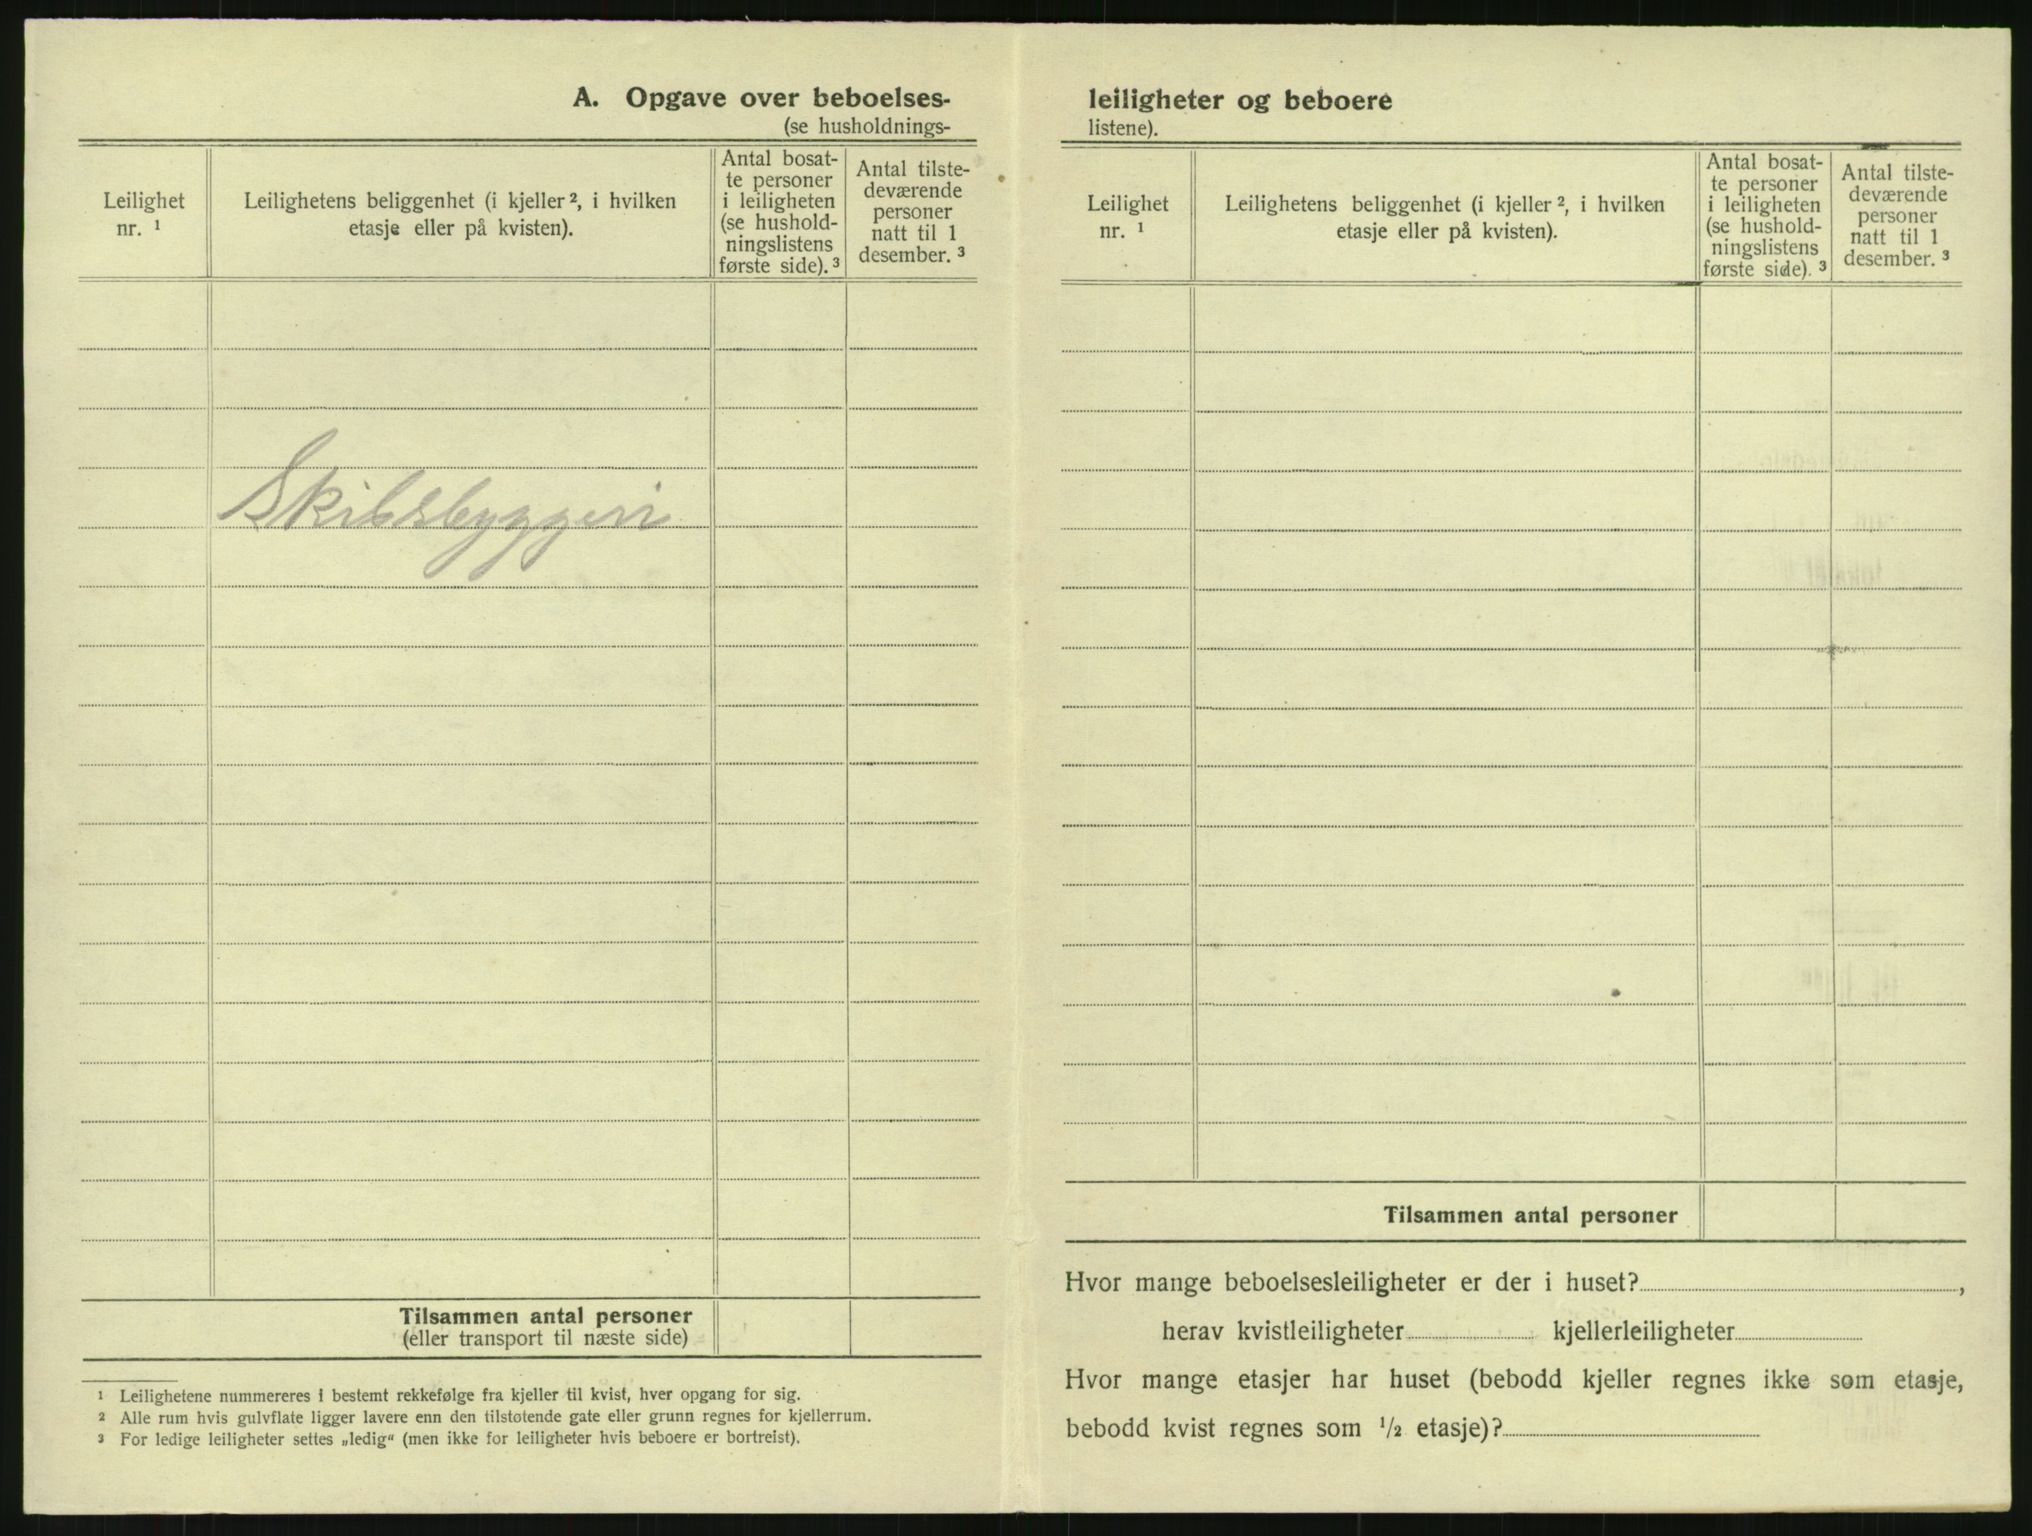 A. Opgave over beboelses-
(se husholdnings-
Leilighet
nr. ¹
Leilighetens beliggenhet (i kjeller ², i hvilken
etasje eller på kvisten).
Antal bosat-
te personer
i leiligheten
(se hushold-
ningslistens
første side). ³
Antal tilste-
deværende
personer
natt til 1
desember. ³
Skibsbyggeri
Tilsammen antal personer
(eller transport til næste side)
¹ Leilighetene nummereres i bestemt rekkefølge fra kjeller til kvist, hver opgang for sig.
² Alle rum hvis gulvflate ligger lavere enn den tilstøtende gate eller grunn regnes for kjellerrum.
³ For ledige leiligheter settes „ledig“ (men ikke for leiligheter hvis beboere er bortreist).
leiligheter og beboere
listene).
Leilighet
nr. ¹
Leilighetens beliggenhet (i kjeller ², i hvilken
etasje eller på kvisten).
Antal bosat-
te personer
i leiligheten
(se hushold-
ningslistens
første side). ³
Antal tilste-
deværende
personer
natt til 1
desember. ³
Tilsammen antal personer
Hvor mange beboelsesleiligheter er der i huset? ,
herav kvistleiligheter kjellerleiligheter
Hvor mange etasjer har huset (bebodd kjeller regnes ikke som etasje,
bebodd kvist regnes som ½ etasje)?